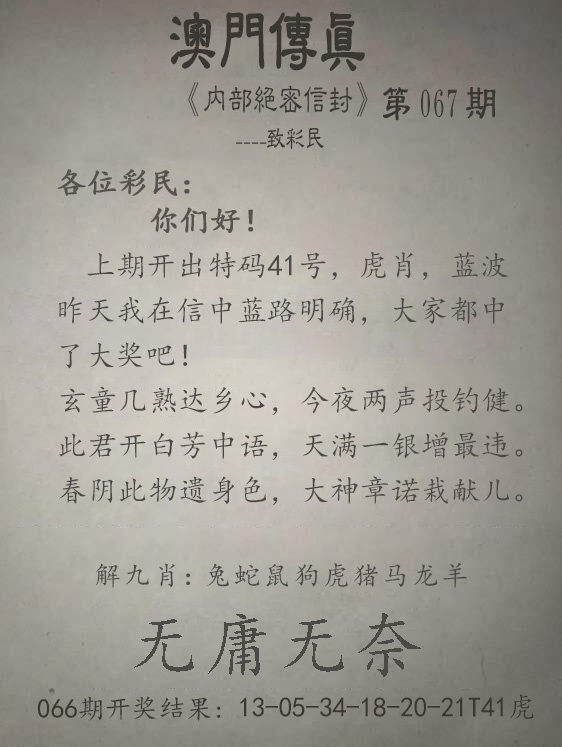 澳門傳眞
《内部絕密信封》第067期
----致彩民
各位彩民：
你们好！
上期开出特码41号，虎肖，蓝波
昨天我在信中蓝路明确，大家都中
了大奖吧！
玄童几熟达乡心，今夜两声投钓健。
此君开白芳中语，天满一银增最违。
春阴此物遗身色，大神章诺栽献儿。
解九肖：兔蛇鼠狗虎猪马龙羊
无庸无奈
066期开奖结果：13-05-34-18-20-21T41虎